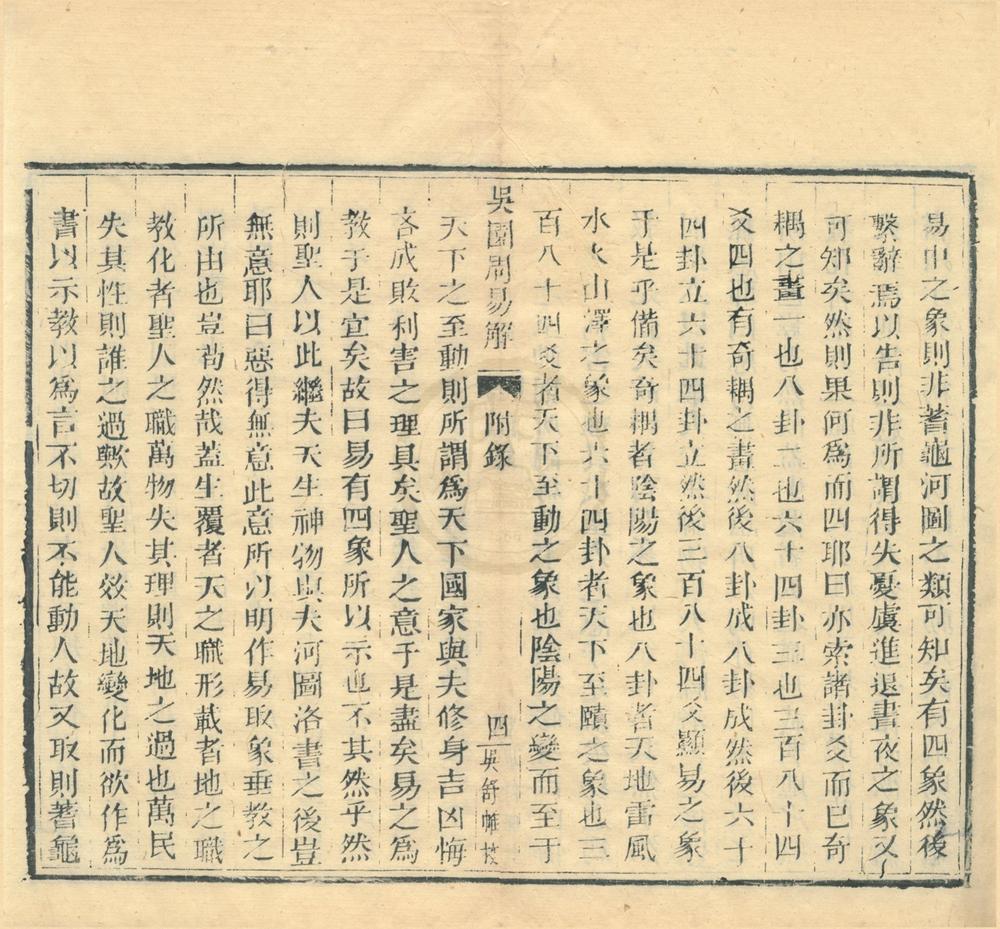 易中之象則非蓍龜河圖之類可知矣有四象然後
繫辭焉以告則非所謂得失憂虞進退晝夜之象又
可知矣然則果何爲而四耶曰亦索諸卦爻而已奇
耦之畫一也八卦二也六十四卦三也三百八十四
爻四也有奇耦之畫然後八卦成八卦成然後六十
四卦立六十四卦立然後三百八十四爻顯易之象
于是乎備矣奇耦者陰陽之象也八卦者天地雷風
水火山澤之象也六十四卦者天下至賾之象也三
百八十四爻者天下至動之象也陰陽之變而至于
吳園周易解
附錄
四
吳舒帷校
天下之至動則所謂爲天下國家與夫修身吉凶悔
吝成敗利害之理具矣聖人之意于是盡矣易之爲
教于是宜矣故曰易有四象所以示也不其然乎然
則聖人以此繼夫天生神物與夫河圖洛書之後豈
無意耶曰惡得無意此意所以明作易取象垂教之
所由也豈苟然哉蓋生覆者天之職形載者地之職
教化者聖人之職萬物失其理則天地之過也萬民
失其性則誰之過歟故聖人效天地變化而欲作爲
書以示教以爲言不切則不能動人故又取則蓍龜